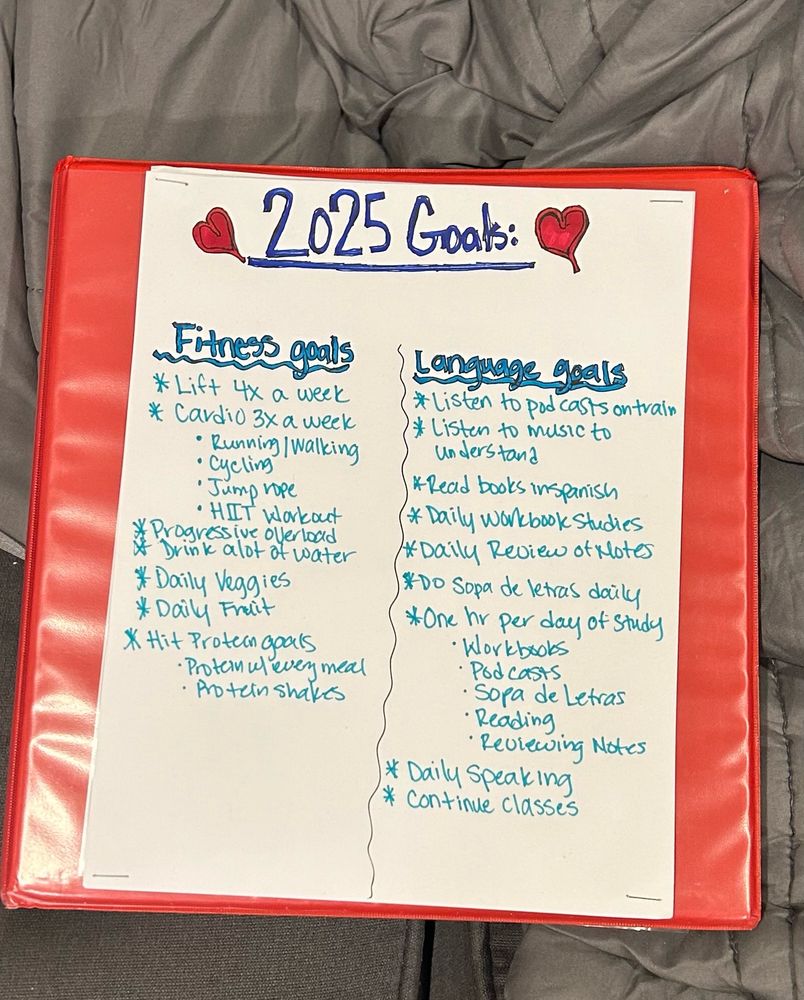 2025 Goals:
Fitness goals
* Lift 4x a week
* Cardio 3x a week
• Running/Walking
• Cycling
• Jump rope
• HIIT Workout
* Progressive overload
* Drink alot of water
* Daily Veggies
* Daily Fruit
* Hit Protein goals
• Protein w/ every meal
• Protein shakes
Language goals
* Listen to podcasts on train
* Listen to music to
understand
* Read books in spanish
* Daily Workbook Studies
* Daily Review of Notes
* Do Sopa de letras daily
* One hr per day of study
• Workbooks
• Podcasts
• Sopa de Letras
• Reading
• Reviewing Notes
* Daily Speaking
* Continue classes